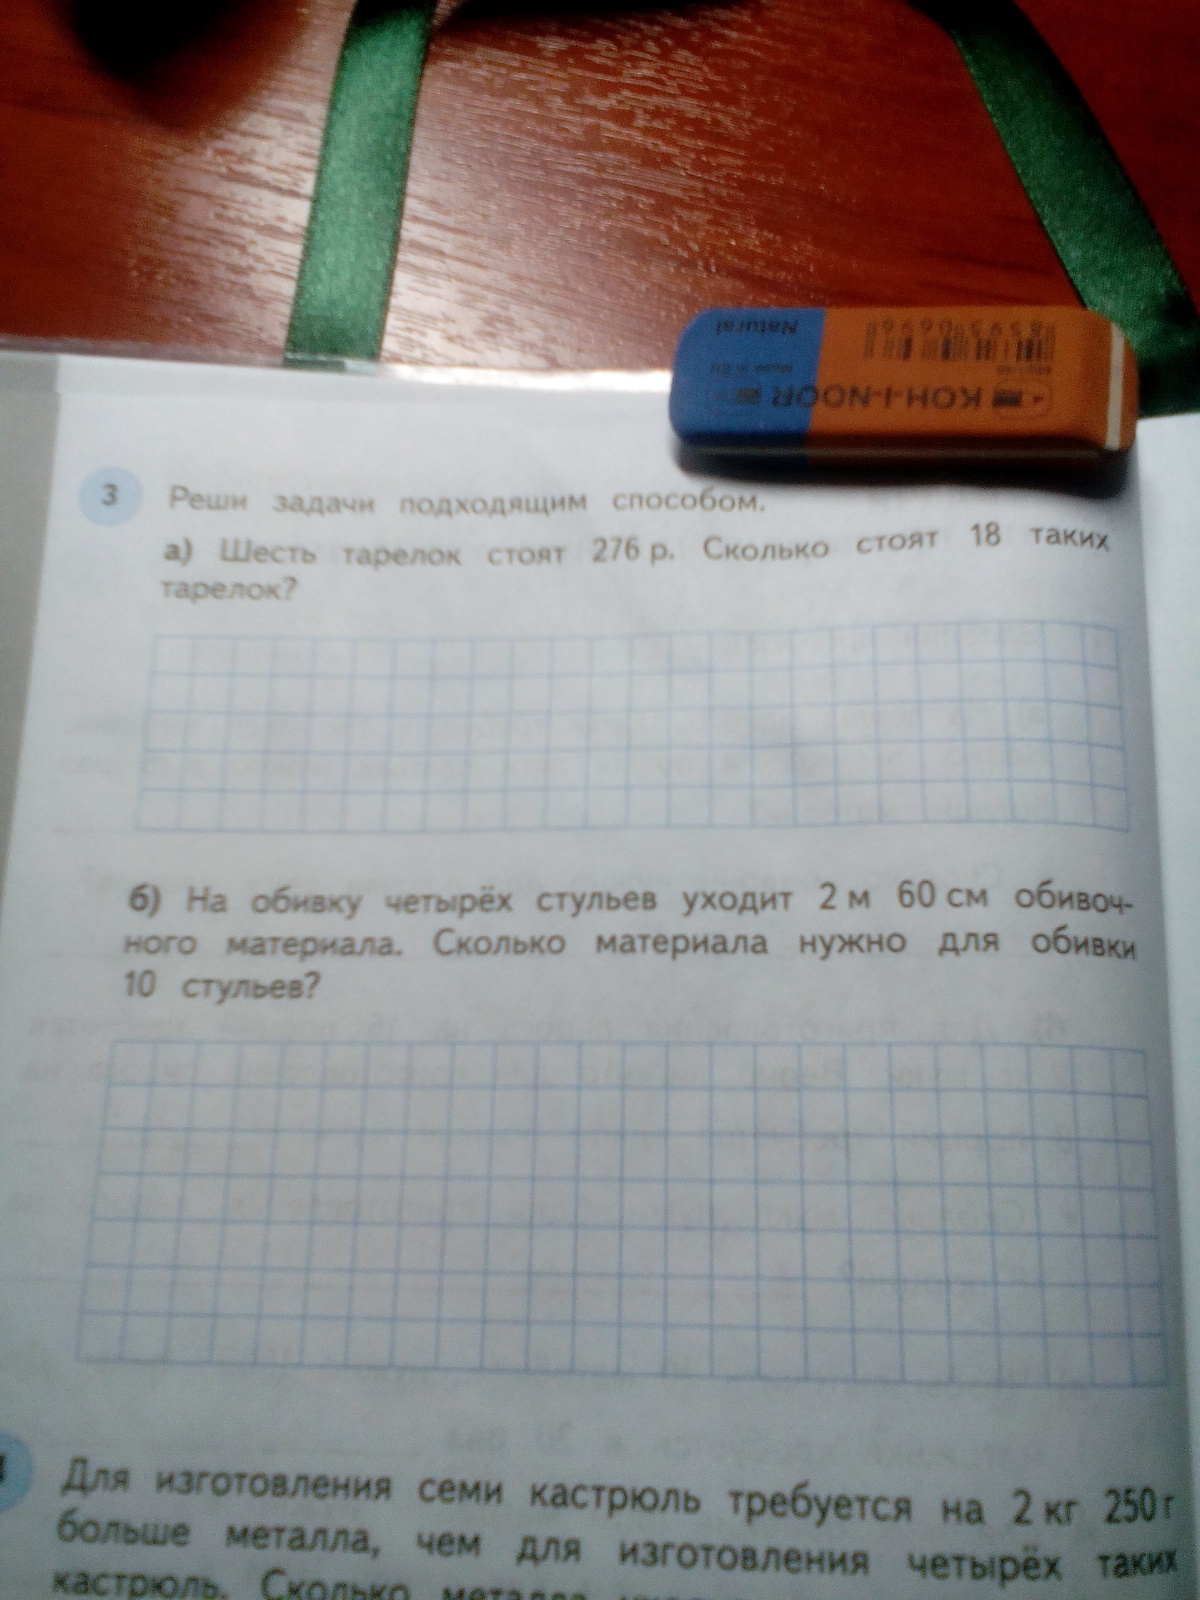 Natural
8593539069б
Made in
KOH-I-NOOR
3 Реши задачи подходящим способом.
а) Шесть тарелок стоят 276 р. Сколько стоят 18 таких
тарелок?
б) На обивку четырёх стульев уходит 2 м 60 см обивоч-
ного материала. Сколько материала нужно для обивки
10 стульев?
Для изготовления семи кастрюль требуется на 2 кг 250 г
больше металла, чем для изготовления четырёх таких
кастрюль. Сколько металла